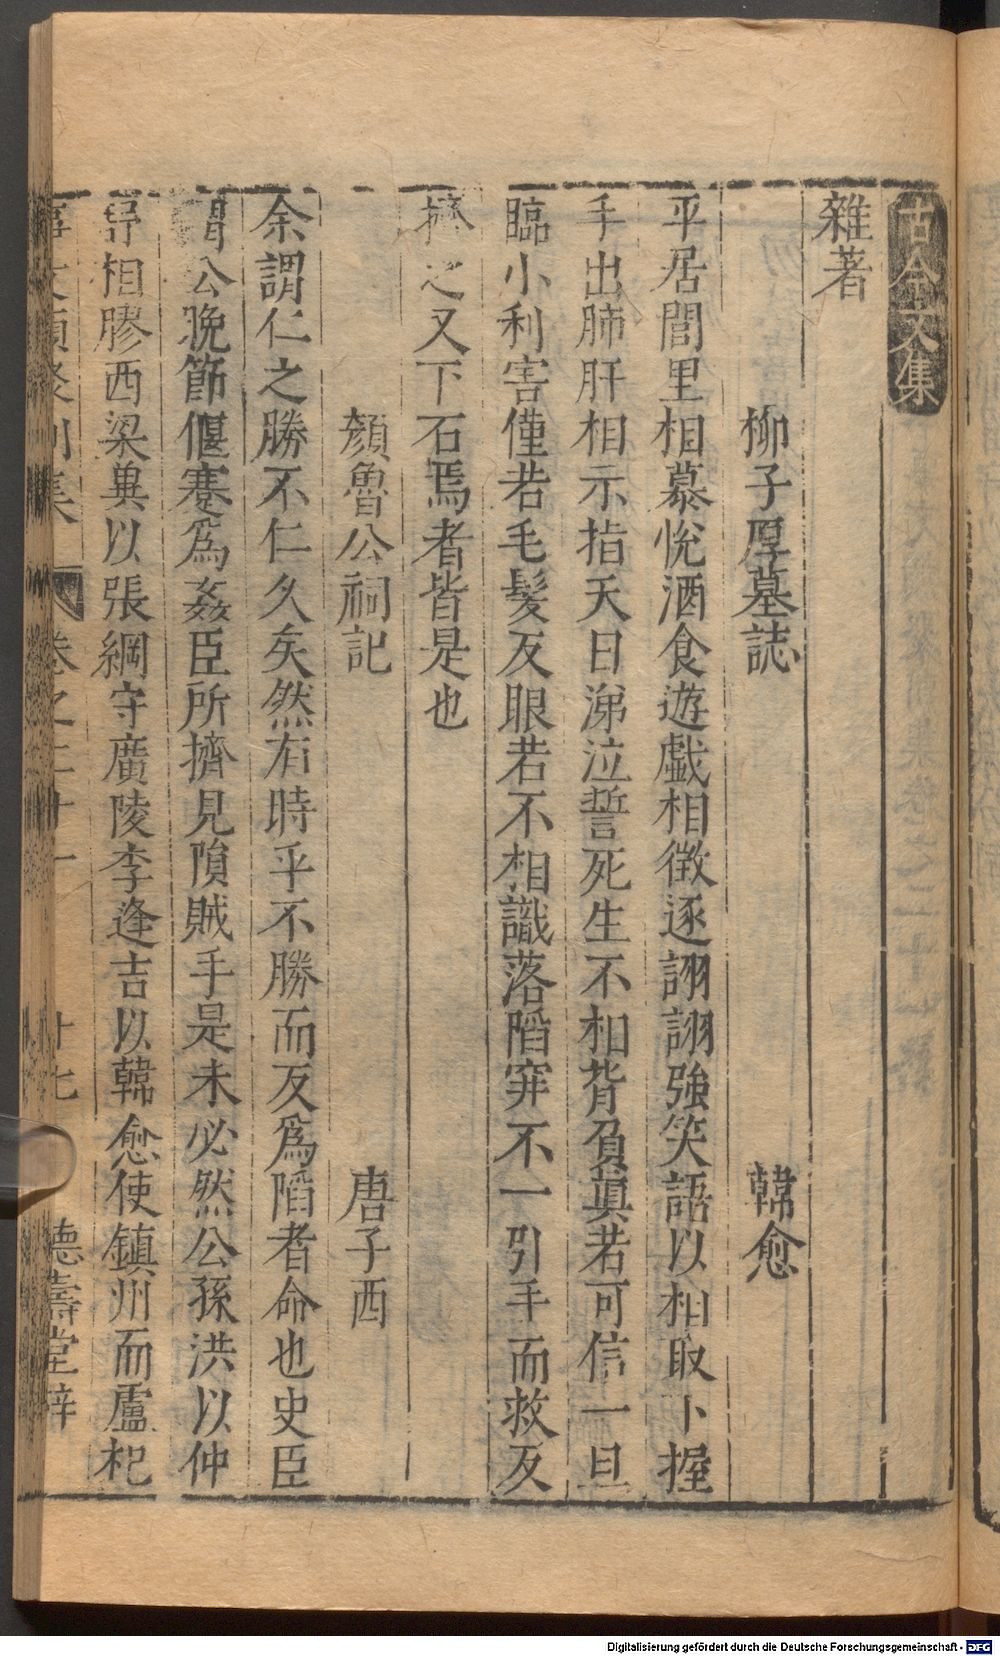 古今文集
雜著
柳子厚墓誌 韓愈
平居閭里相慕悅酒食遊戲相徴逐詡詡強笑語以相取下握
手出肺肝相示指天日涕泣誓死生不相背負真若可信一旦
臨小利害僅若毛髮反眼若不相識落陷穽不一引手而救反
擠之又下石焉者皆是也
顏魯公祠記 唐子西
余謂仁之勝不仁久矣然有時乎不勝而反爲陷者命也史臣
謂公晚節偃蹇爲姦臣所擠見隕賊手是未必然公孫洪以仲
舒相膠西梁冀以張綱守廣陵李逢吉以韓愈使鎮州而盧杞
事文類聚別集 卷之二十一 十七 德壽堂梓
Digitalisierung gefördert durch die Deutsche Forschungsgemeinschaft - DFG